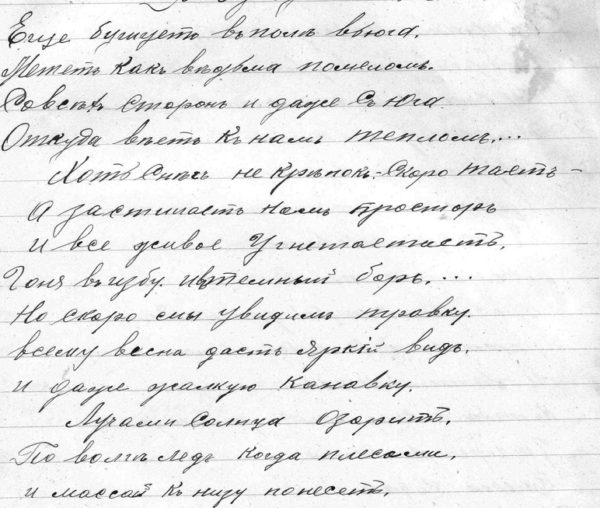 Еще бушуетъ въ полѣ вьюга.
Мететъ какъ вѣдьма помеломъ.
Со всѣхъ сторонъ и даже съ юга
Откуда вѣетъ къ намъ тепломъ...
Хоть снѣгъ не крѣпокъ. - Скоро таетъ -
А застилаетъ намъ просторъ
и все живое угнетаетъ,
Гоня въ избу. и въ темный боръ....
Но скоро мы увидимъ травку.
всему весна дастъ яркій видъ,
и даже жалкую канавку.
Лучами солнца озаритъ.
По волгѣ ледъ когда плесами,
и массой къ низу понесетъ,